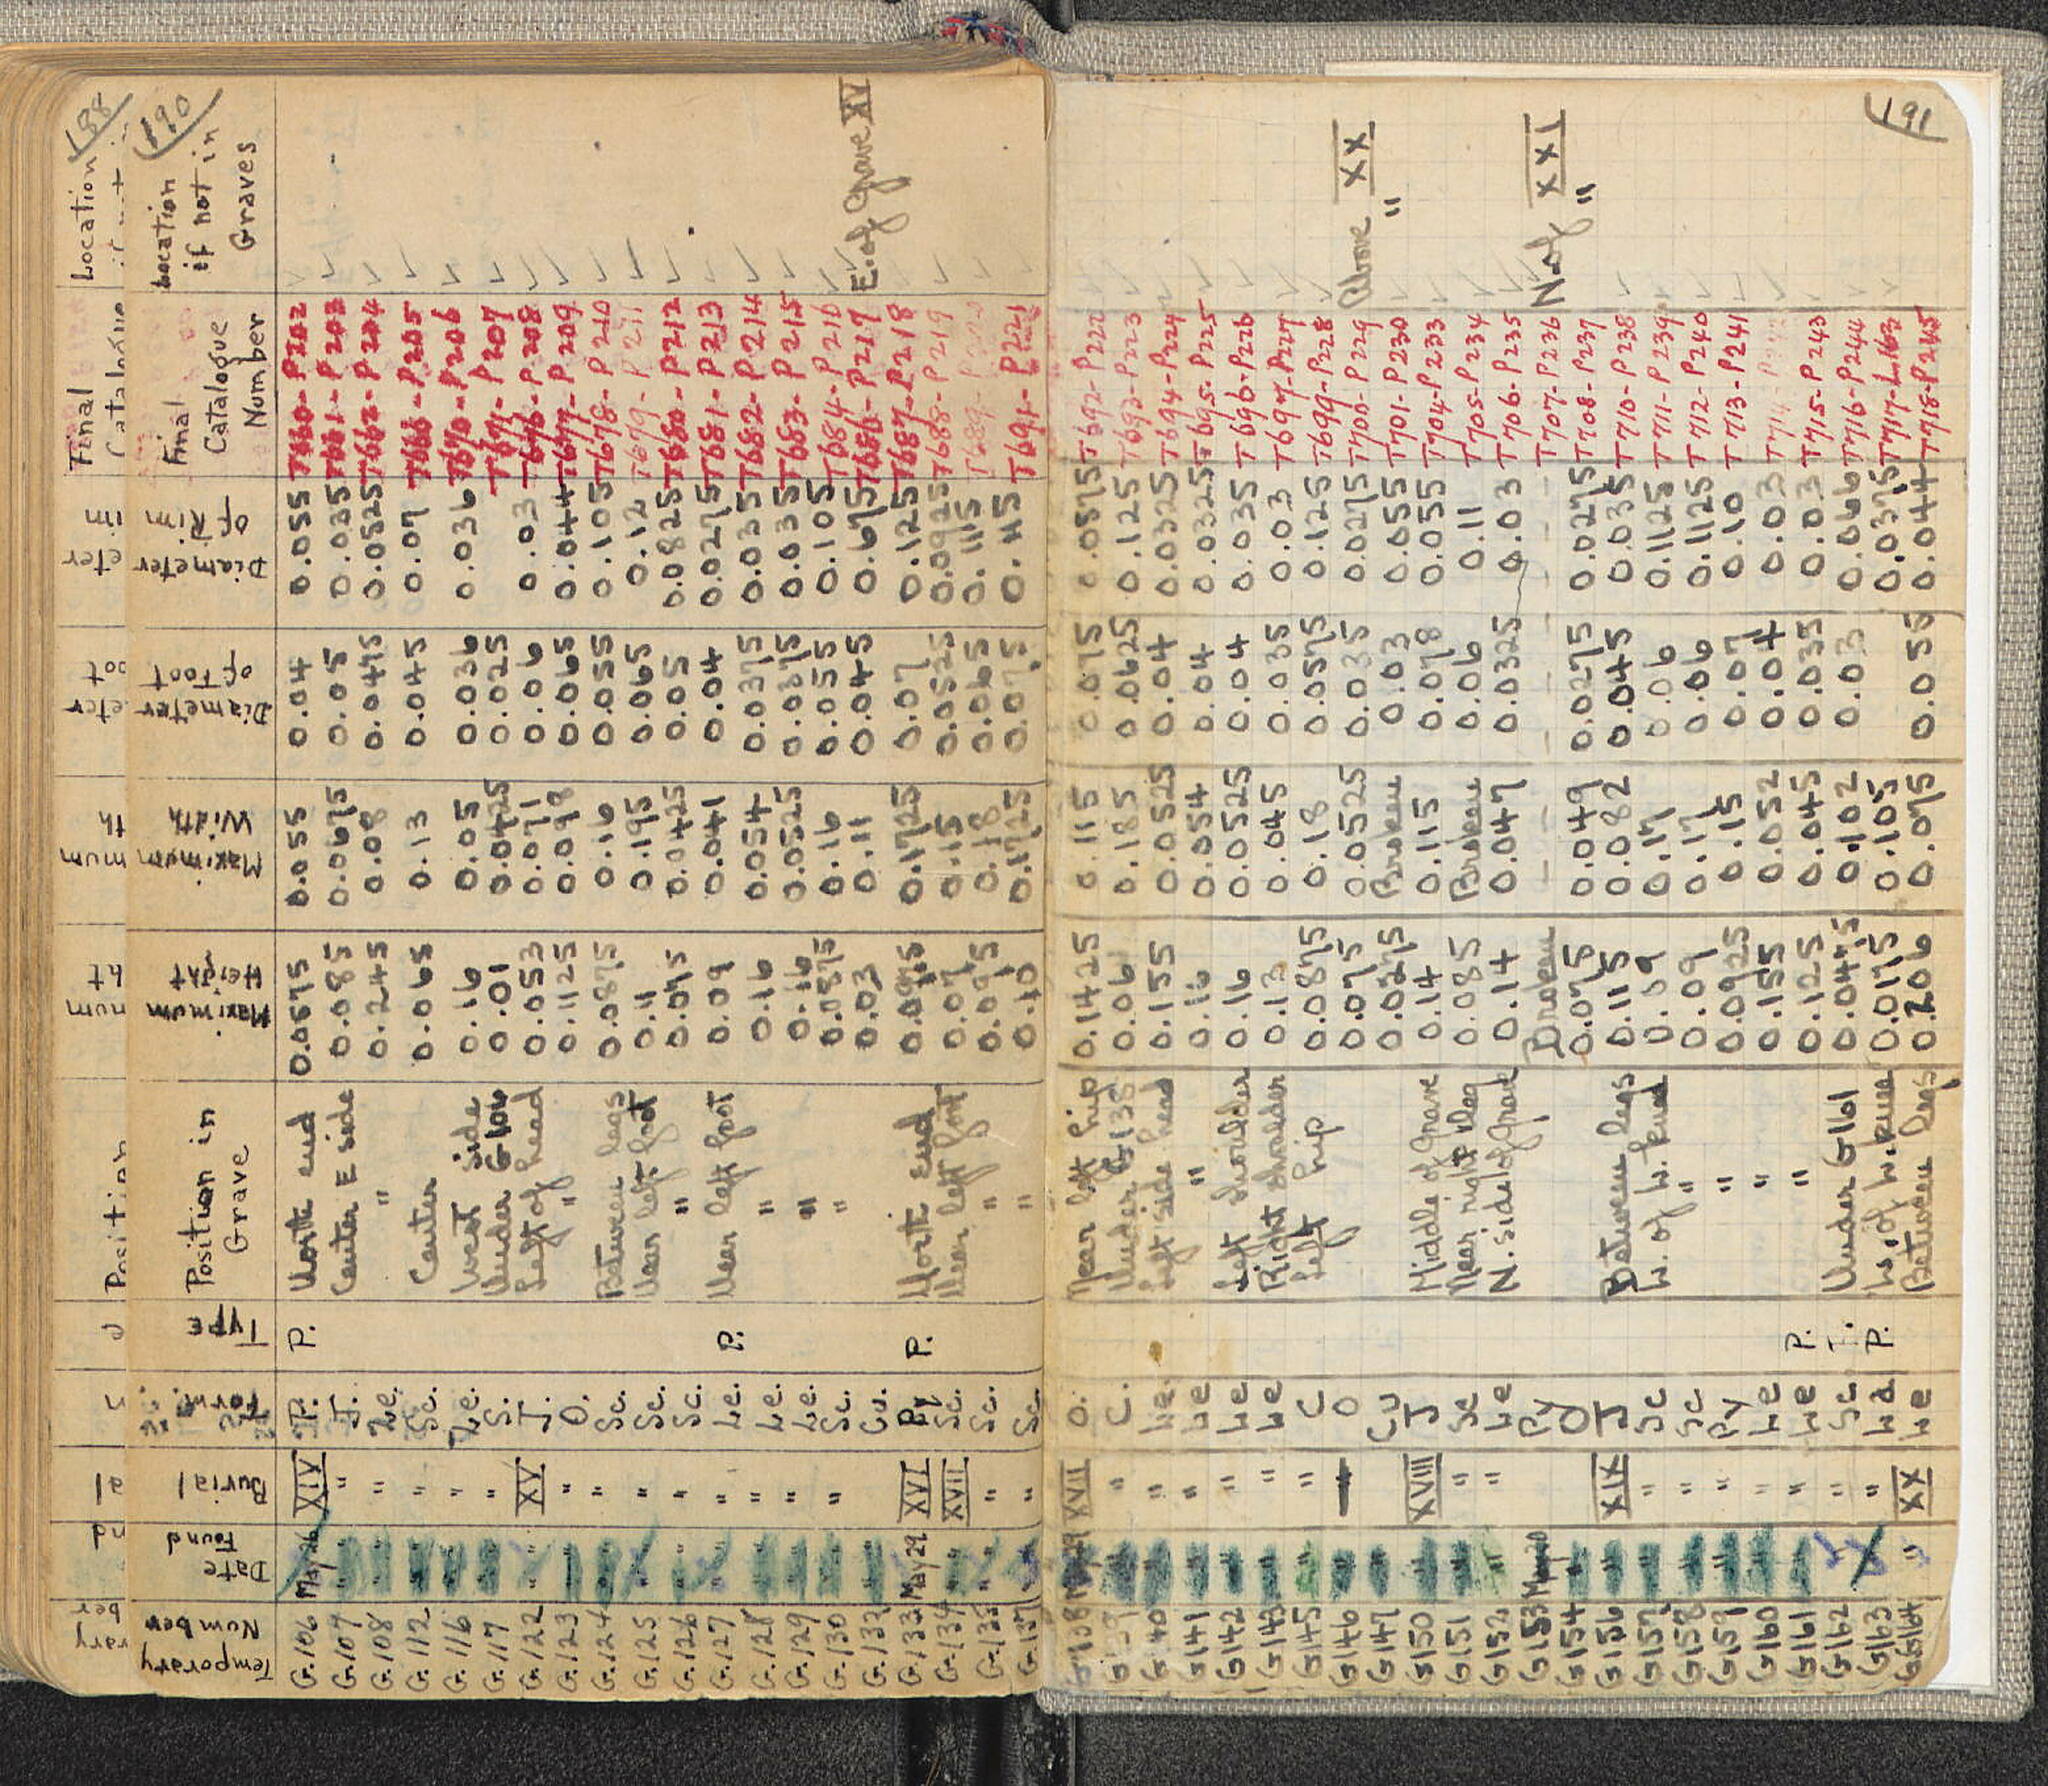 188
190
191
Temporary Number | Date Found | Burial | Form | Type | Position in Grave | Maximum Height | Maximum Width | Diameter of Foot | Diameter of Rim | Final Catalogue Number | Location if not in Graves
G.106 May 26 XIV P. P. North end 0.0575 0.055 0.04 0.055 T660-P202
G.107 " " J. Center E side 0.085 0.0675 0.05 0.035 T661-P203
G.108 " " Le. " 0.245 0.08 0.0475 0.0525 T662-P204
G.112 " " Sc. Center 0.065 0.13 0.045 0.07 P205
G.116 " " Le. West side 0.16 0.05 0.036 0.036 T670-P206
G.117 " " S. Under G104 0.01 0.0425 0.025 T671-P207
G.122 " XV J. Left of head 0.053 0.071 0.06 0.03 T676-P208
G.123 " " O. " 0.1125 0.098 0.065 0.044 T677-P209
G.124 " " Sc. Between legs 0.0875 0.16 0.055 0.105 T678-P210
G.125 " " Sc. Near left foot 0.11 0.195 0.065 0.12 T679-P211
G.126 " " Sc. " 0.075 0.0425 0.05 0.0825 T680-P212
G.127 " " Le. P. Near left foot 0.09 0.041 0.04 0.0275 T681-P213
G.128 " " Le. " 0.16 0.054 0.0375 0.035 T682-P214
G.129 " " Le. " 0.16 0.0525 0.0375 0.035 T683-P215
G.130 " " Sc. " 0.0875 0.16 0.055 0.105 T684-P216
G.132 " Cu. 0.03 0.11 0.045 0.675 T686-P217 E. of Grave XV
G.133 May 29 XVI Py P. North end 0.0975 0.1725 0.07 0.125 T687-P218
G.134 " XVII Sc. Near left foot 0.07 0.15 0.0525 0.0925 T688-P219
G.135 " " Sc. " 0.095 0.18 0.065 0.115 T689-
G.137 " " Sc. " 0.10 0.1725 0.075 0.115 T691-P221
G138 May 29 XVII O. Near left hip 0.1425 0.115 0.075 0.0575 T692-P222
G139 " " C. Under G138 0.06 0.185 0.0625 0.125 T693-P223
G140 " " Le. Left side head 0.155 0.0525 0.04 0.0325 T694-P224
G141 " " Le " 0.16 0.054 0.04 0.0325 T695-P225
G142 " " Le Left shoulder 0.16 0.0525 0.04 0.035 T696-P226
G143 " " Le Right shoulder 0.13 0.045 0.035 0.03 T697-P227
G145 " " C Left hip 0.0875 0.18 0.0575 0.125 T699-P228
G146 " O 0.075 0.0525 0.035 0.0275 T700-P229 Above XX
G147 " Cu 0.0275 Broken 0.03 0.055 T701-P230 "
G150 " XVIII J Middle of Grave 0.14 0.115 0.078 0.055 T704-P233
G151 " " Sc Near right leg 0.085 Broken 0.06 0.11 T705-P234
G152 " " Le N. side of Grave 0.14 0.047 0.0325 0.03 T706-P235
G153 May 30 Py Broken — — — T707-P236 N. of XXI
G154 " O 0.075 0.049 0.0275 0.0275 T708-P237 "
G156 " XIX J Between legs 0.115 0.082 0.045 0.035 T710-P238
G157 " " Sc W. of W. knee 0.09 0.17 0.06 0.1125 T711-P239
G158 " " Sc " 0.09 0.17 0.06 0.1125 T712-P240
G159 " " Py " 0.0925 0.15 0.07 0.10 T713-P241
G160 " " Le " 0.155 0.052 0.04 0.03 T714-
G161 " " Le P. " 0.125 0.045 0.035 0.03 T715-P243
G162 " Sc Under G161 0.0475 0.102 0.03 0.066 T716-P244
G163 " La P. W. of W. knee 0.0175 0.105 0.0375 T717-L163
G164 " XX Le Between legs 0.206 0.075 0.055 0.044 T718-P245